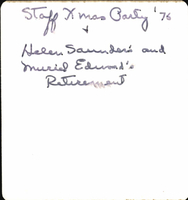 Staff Xmas Party '76
&
Helen Saunders and
Muriel Edward's
Retirement